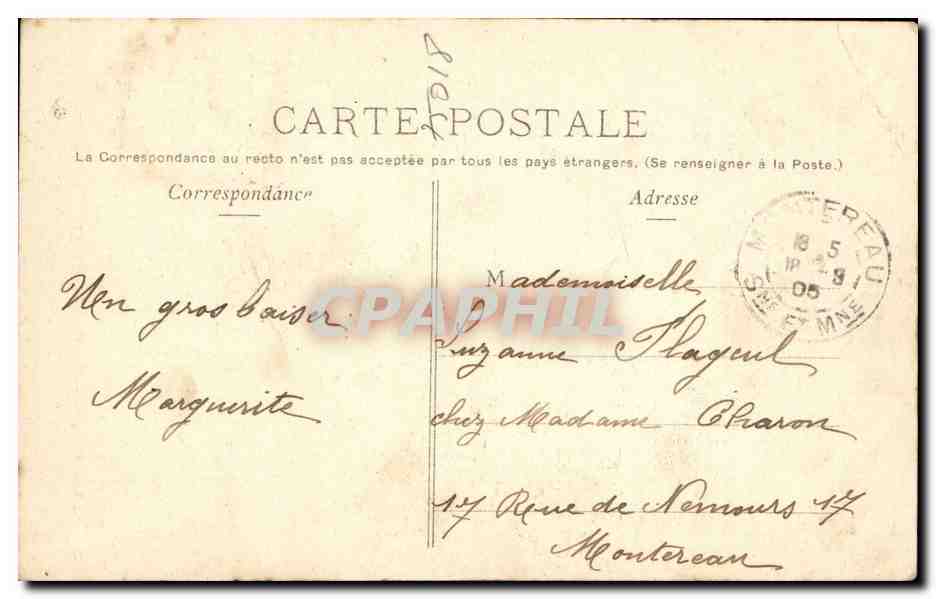 25018
CARTE POSTALE
La Correspondance au recto n'est pas acceptée par tous les pays étrangers. (Se renseigner à la Poste.)
Correspondance
Un gros baiser.
Marguerite
Adresse
MONTEREAU
18 5
05
SNE ET MNE
Mademoiselle
Suzanne Flageul
chez Madame Charon
17 Rue de Nemours 17
Montereau
CPAPHIL